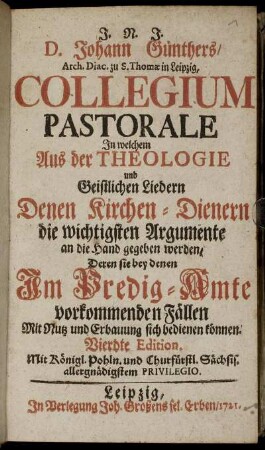 J. N. J.
D. Johann Günthers/
Arch. Diac. zu S. Thomæ in Leipzig,
COLLEGIUM
PASTORALE
In welchem
Aus der THEOLOGIE
und
Geistlichen Liedern
Denen Kirchen-Dienern
die wichtigsten Argumente
an die Hand gegeben werden/
Deren sie bey denen
Am Predig-Amte
vorkommenden Fällen
Mit Nutz und Erbauung sich bedienen können.
Vierdte Edition.
Mit Königl. Pohln. und Churfürstl. Sächsis.
allergnädigstem PRIVILEGIO.
Leipzig,
In Verlegung Joh. Großens sel. Erben/1721.